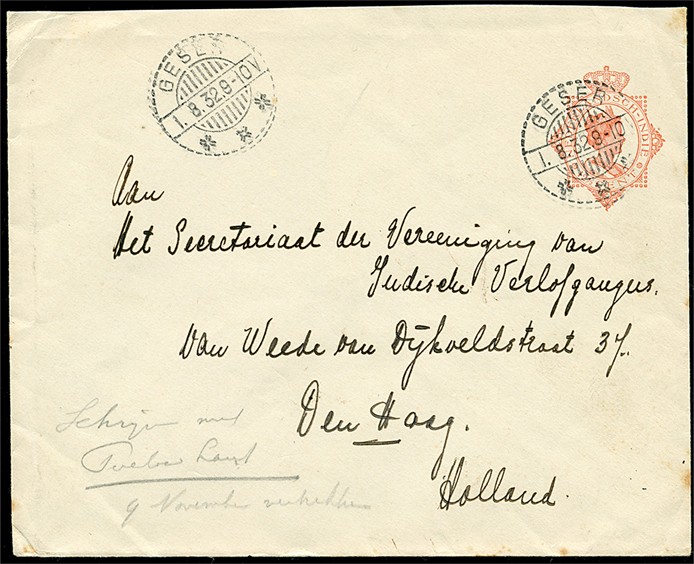 GESER
1.8.32.9-10V
GESER
1.8.32.9-10
SCH-INDIE
Aan
Het Secretariaat der Vereeniging van
Indische Verlofgangers.
Van Weede van Dijkveldstraat 37.
Den Haag.
Holland.
Schrijven met
9 November vertrekken